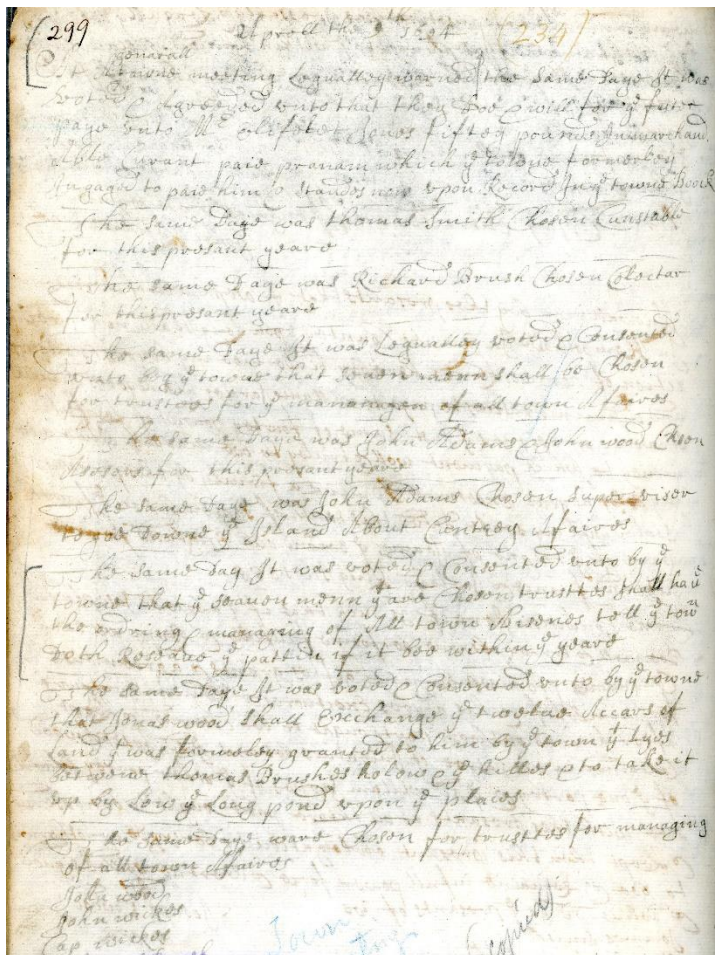 299
Aprell the 9th 1694 (234)
genarall
At A towne meeting Legualley warned the same daye It was
voted & Agreeed vnto that they doe & will for ye futer
paye vnto Mr Elifelet Jones fiftey pounds In marchand
Able Curant paie pr anam which ye towne formerley
Ingaged to paie him & standes now vpon Record In ye towne Boock
The same daye was thomas Smith Chosen Cunstable
for this presant yeare
The same daye was Richard Brush Chosen Colectar
for this presant yeare
The same daye It was Legualley voted & Consented
vnto by ye towne that seuen menn shall be Chosen
for trustees for ye managen of all town Afaires
The same daye was John Adams & John wood Chosen
Asesers for this presant yeare
The same daye was John Adams Chosen super viser
to goe downe ye Island About Cuntrey Afaires
The same day It was voted & Consented vnto by ye
towne that ye seauen menn yt are Chosen trusttes shall haue
the ordring & managing of All town bisenes tell ye town
doth Reseaue ye pattin if it bee within ye yeare
The same daye It was voted & Consented vnto by ye towne
that Jonas wood shall Exchange ye twelue Accars of
Land yt was formeley granted to him by ye town yt Lyes
betwene thomas Brushes holow & ye hilles & to take it
vp by Low ye Long pond vpon ye plaies
The same daye ware Chosen for trusttes for managing
of all town Afaires
wood
John wickes
Cap wickes
Town
Copied